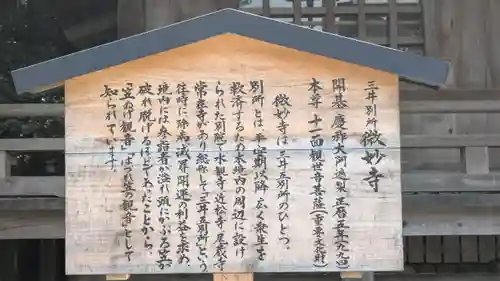 三井別所 微妙寺
開基 慶祚大阿闍梨 正暦五年(九九四)
本尊 十一面観世音菩薩(重要文化財)
微妙寺は三井五別所のひとつ。
別所とは平安期以降、広く衆生を
救済するため本境内の周辺に設け
られた別院で、水観寺・近松寺・尾蔵寺・
常在寺があり総称して三井五別所という
往時には除病滅罪開運利益を求め
境内には参詣者が溢れ頭にかぶる笠が
破れ脱げるほどであったことから、
「笠ぬけ観音」「はずれ笠の観音」として
知られています。